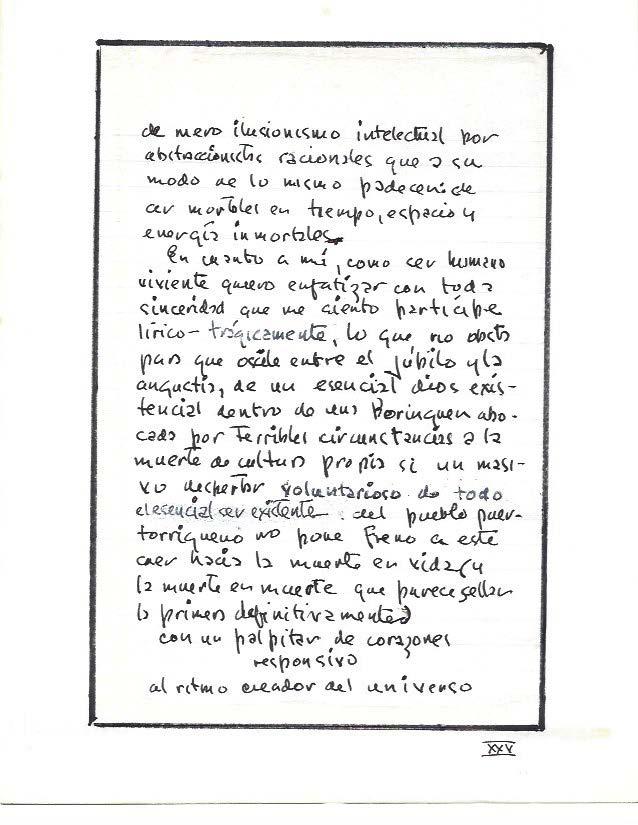 de mero ilusionismo intelectual por
abstraccionistas racionales que a su
modo de lo mismo padecen: de
ser mortales en tiempo, espacio y
energía inmortales.
En cuanto a mí, como ser humano
viviente quiero enfatizar con toda
sinceridad que me siento partícipe
lírico-trágicamente, lo que no obsta
para que oscile entre el júbilo y la
angustia, de un esencial dios exis-
tencial dentro de una Borinquen abo-
cada por terribles circunstancias a la
muerte de cultura propia si un masi-
vo despertar voluntarioso de todo
el esencial ser existente del pueblo puer-
torriqueño no pone freno a este
caer hacia la muerte en vida (y
la muerte en muerte que parece sellar
la primera definitivamente)
con un palpitar de corazones
responsivo
al ritmo creador del universo
XXV